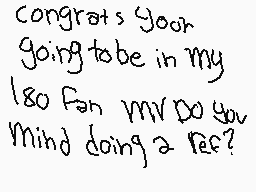 congrats your
going to be in my
180 fan MV DO you
mind doing a ref?